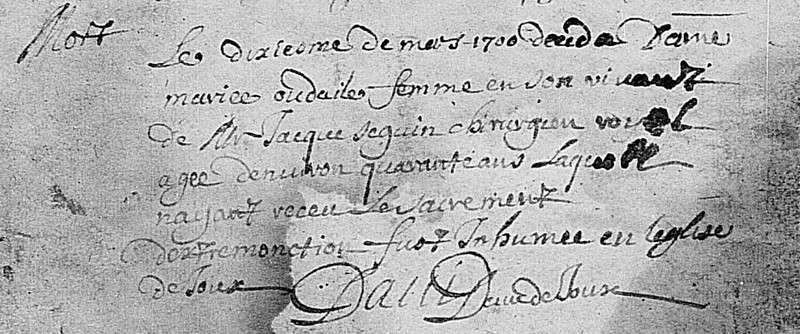 Mort
Le dixieme de mars 1700 deceda Dame
mariee oudaille femme en son vivant
de Mr Jacque Seguin chirurgien royal
agee denviron quarante ans Laquelle
nayant receu Le sacrement
dextremonction fust Inhumee en leglise
de Joux Curé de Joux